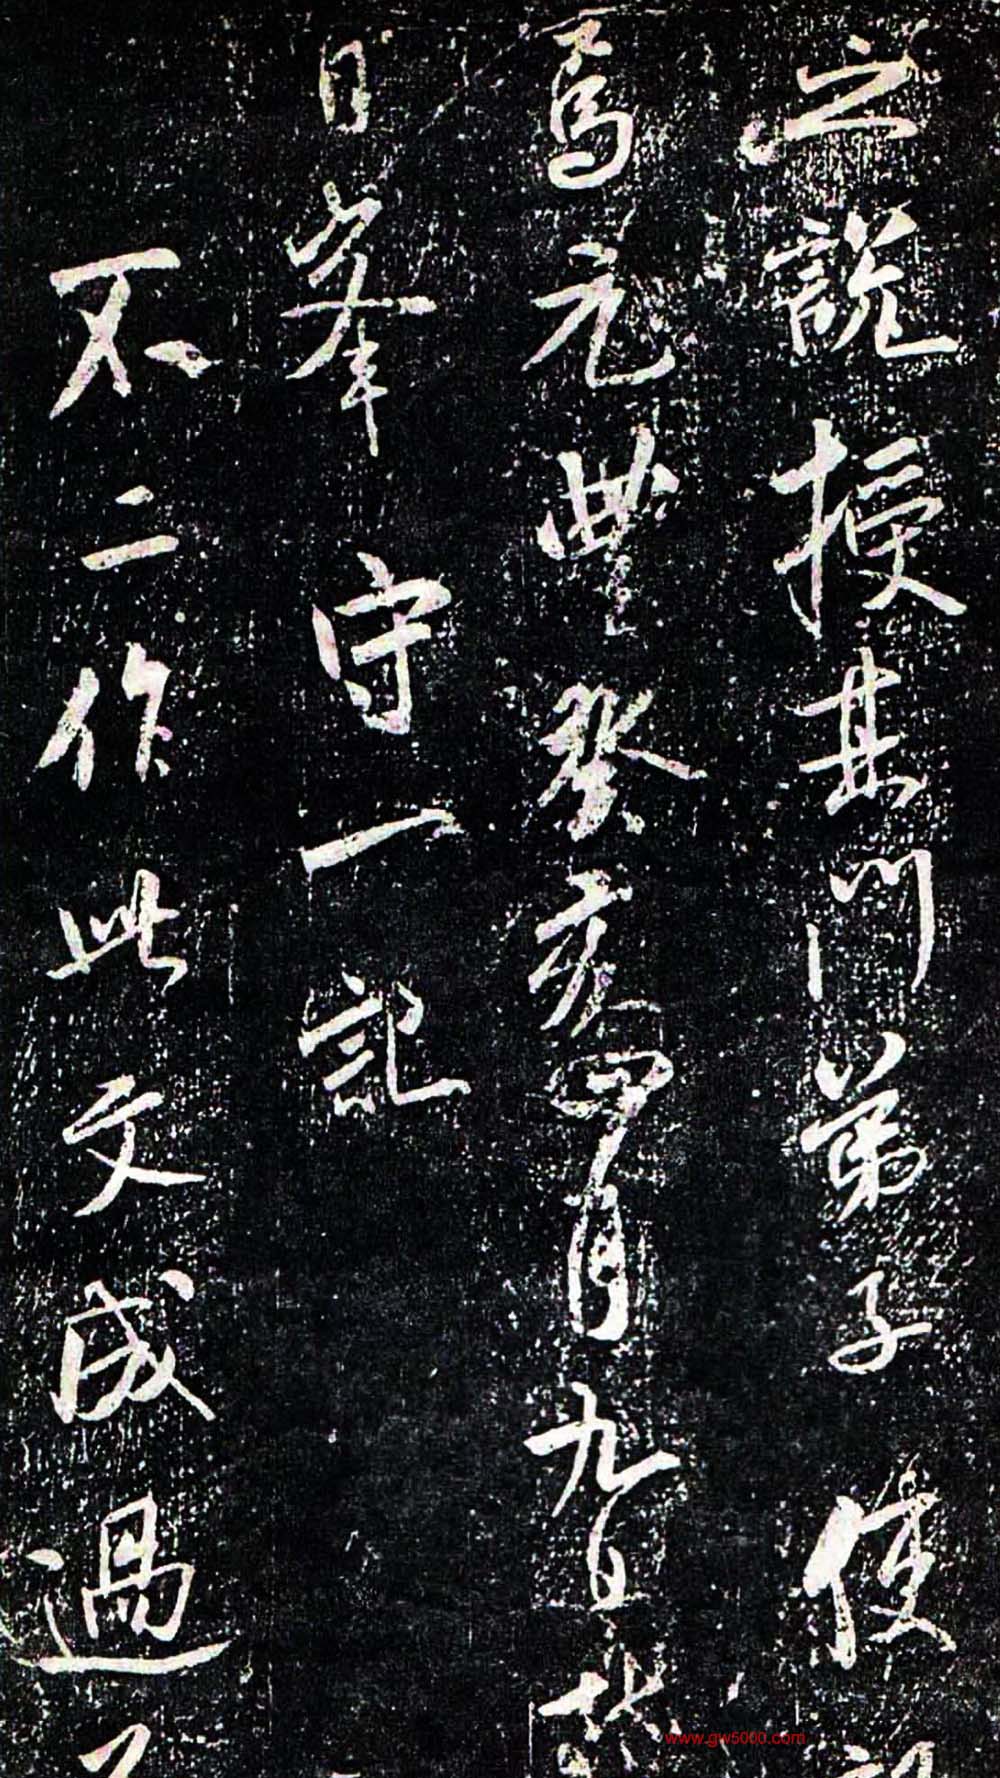 之說授其門弟子使
焉元豐癸亥四月九日
日峯守一記
不二作此文成過
www.gw5000.com